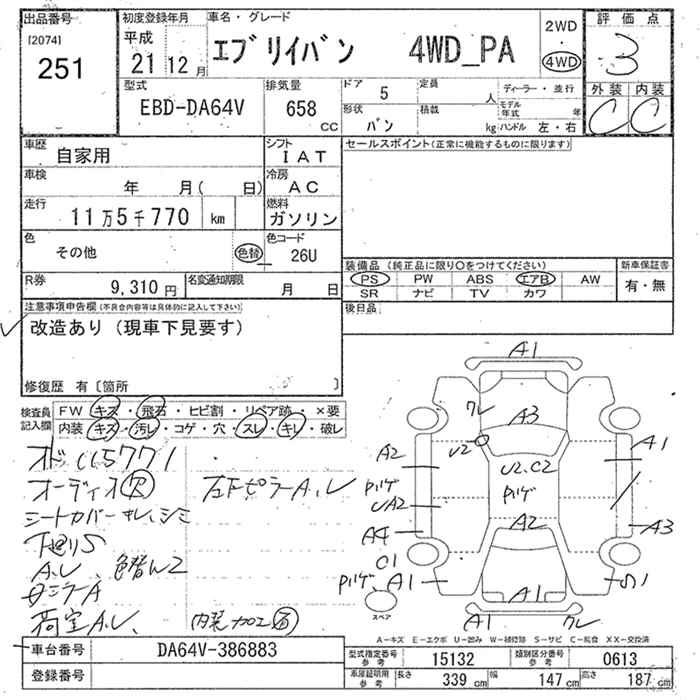 出品番号
[2074]
251
初度登録年月
平成
21 12 月
車名・グレード
エブリイバン 4WD_PA
2WD
・
4WD
評価点
3
外装 内装
C C
型式
EBD-DA64V
排気量
658 cc
ドア 5
定員 人
形状 バン
積載 kg
ディーラー・並行
モデル年式 年
ハンドル 左・右
車歴 自家用
シフト IAT
車検 年 月( 日)
冷房 AC
走行 11万5千770 km
燃料 ガソリン
色 その他 色替
色コード 26U
R券 9,310 円
名変通知期限 月 日
セールスポイント(正常に機能するものに限ります)
装備品 (純正品に限り○をつけてください)
PS PW ABS エアB AW
SR ナビ TV カワ
新車保証書
有・無
後日品
注意事項申告欄(不具合内容等は具体的に記入して下さい)
改造あり(現車下見要す)
修復歴 有〔箇所 〕
検査員記入欄
FW キズ・飛石・ヒビ割・リペア跡・×要
内装 キズ・汚レ・コゲ・穴・スレ・キレ・破レ
オド115771
オーディオ欠
左下ピラーA、レ
シートカバー キレ、シミ
下廻りS
A、レ 色替ムラ
荷室A、レ
内装加工有
A1
クレ
A3
U2
U2、C2
A2
A1
A2
UA2
A4
C1
A1
A3
A1
A1
クレ
スペア
A-キズ E-エクボ U-凹み W-補修跡 S-サビ C-腐食 XX-交換済
車台番号 DA64V-386883
登録番号
型式指定番号 参考 15132
類別区分番号 参考 0613
車庫証明用 参考 長さ 339 cm 幅 147 cm 高さ 187 cm